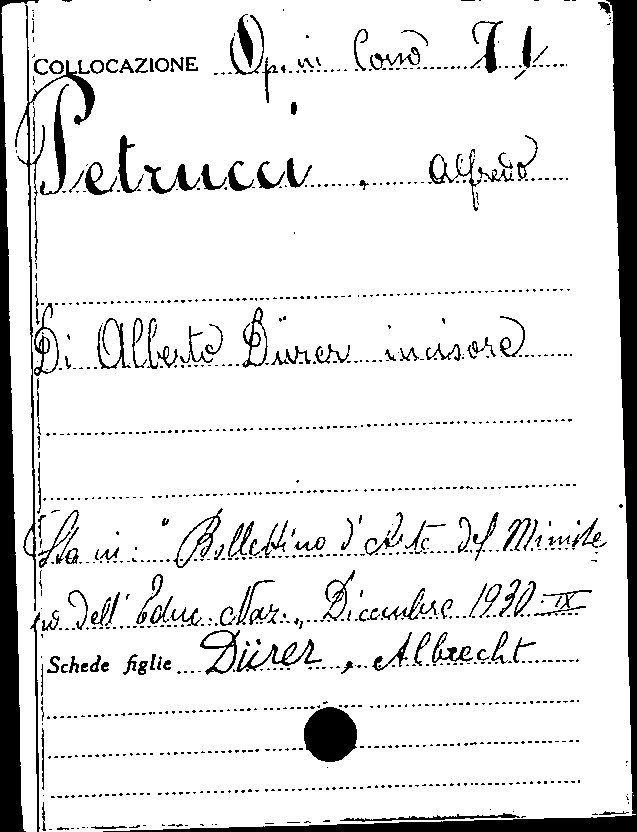 COLLOCAZIONE Op. in Corso 71
Petrucci, Alfredo
Di Alberto Dürer incisore
Sta in: "Bollettino d'Arte del Ministe
ro dell'Educ. Naz." Dicembre 1930-IX
Schede figlie Dürer, Albrecht